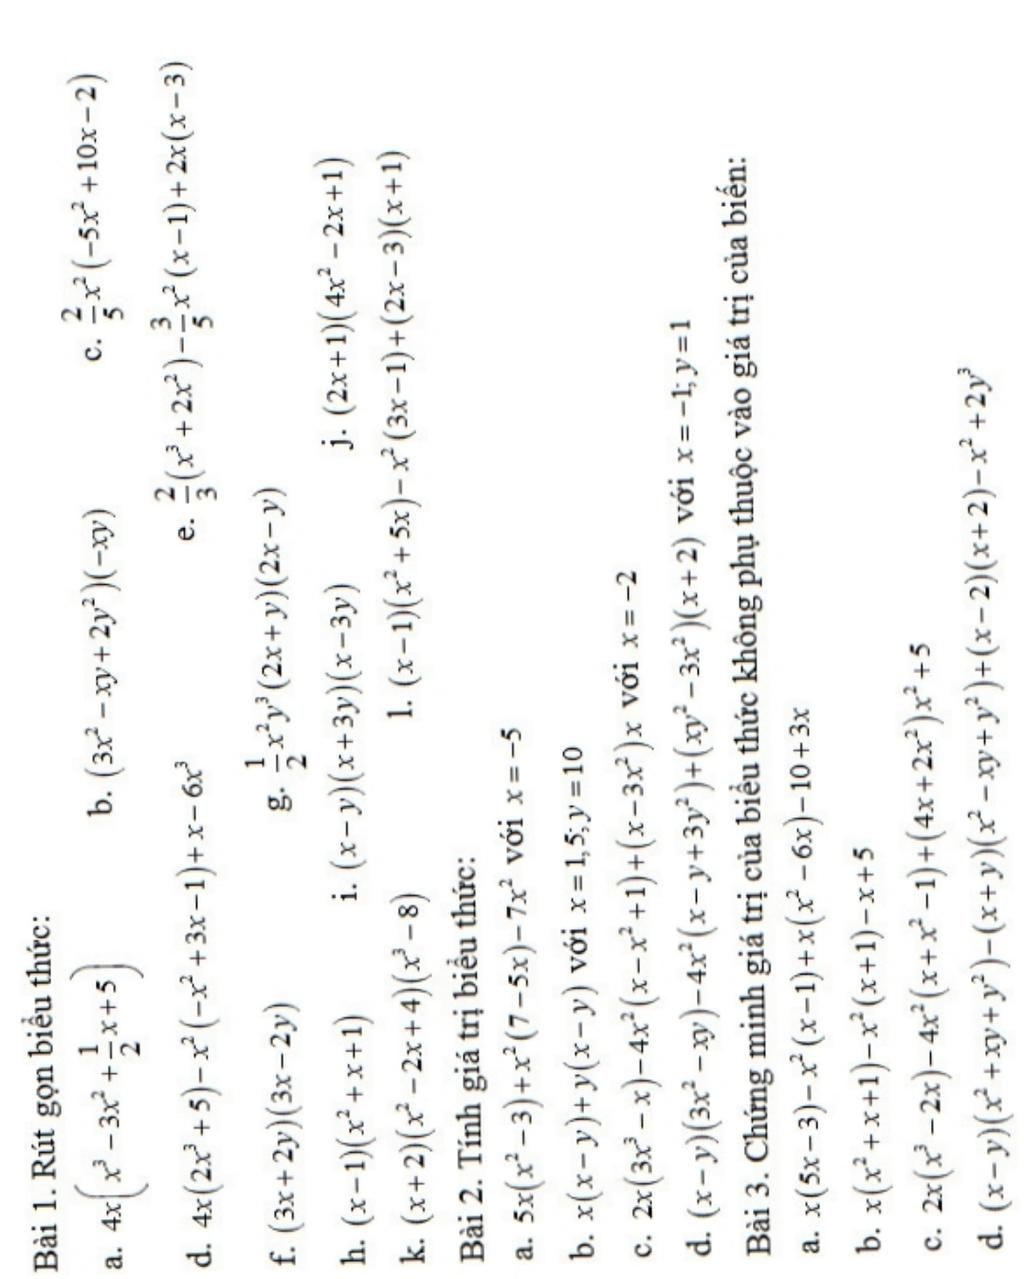 Bài 1. Rút gọn biểu thức:
a. 4x(x³ − 3x² + 1/2 x + 5) b. (3x² − xy + 2y²)(−xy) c. 2/5 x²(−5x² + 10x − 2)
d. 4x(2x³ + 5) − x²(−x² + 3x − 1) + x − 6x³ e. 2/3(x³ + 2x²) − 3/5 x²(x − 1) + 2x(x − 3)
f. (3x + 2y)(3x − 2y) g. 1/2 x²y³(2x + y)(2x − y)
h. (x − 1)(x² + x + 1) i. (x − y)(x + 3y)(x − 3y) j. (2x + 1)(4x² − 2x + 1)
k. (x + 2)(x² − 2x + 4)(x³ − 8) l. (x − 1)(x² + 5x) − x²(3x − 1) + (2x − 3)(x + 1)
Bài 2. Tính giá trị biểu thức:
a. 5x(x² − 3) + x²(7 − 5x) − 7x² với x = −5
b. x(x − y) + y(x − y) với x = 1,5; y = 10
c. 2x(3x³ − x) − 4x²(x − x² + 1) + (x − 3x²)x với x = −2
d. (x − y)(3x² − xy) − 4x²(x − y + 3y²) + (xy² − 3x²)(x + 2) với x = −1; y = 1
Bài 3. Chứng minh giá trị của biểu thức không phụ thuộc vào giá trị của biến:
a. x(5x − 3) − x²(x − 1) + x(x² − 6x) − 10 + 3x
b. x(x² + x + 1) − x²(x + 1) − x + 5
c. 2x(x³ − 2x) − 4x²(x + x² − 1) + (4x + 2x²)x² + 5
d. (x − y)(x² + xy + y²) − (x + y)(x² − xy + y²) + (x − 2)(x + 2) − x² + 2y³